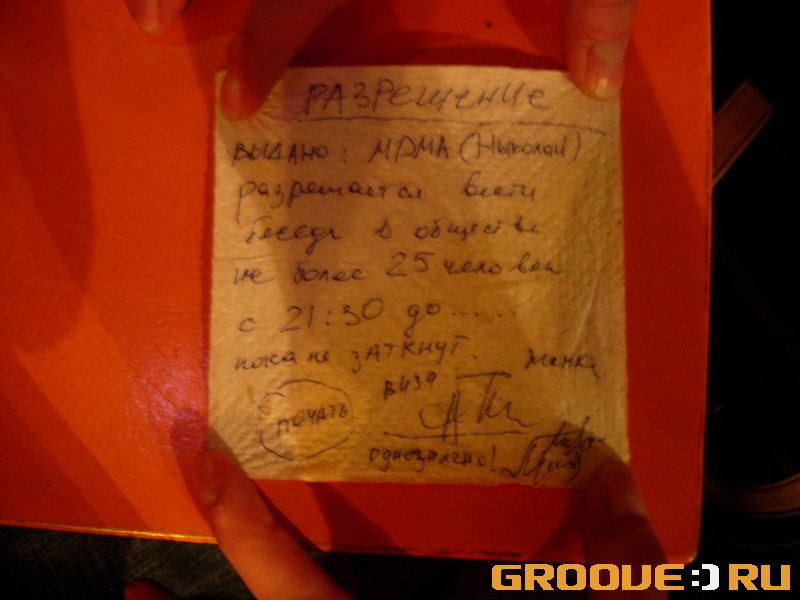 РАЗРЕШЕНИЕ
ВЫДАНО: МДМА (Ныколай)
разрешается вести
беседы в обществе
не более 25 человек
с 21:30 до.....
пока не ЗАТКНУТ.
ВИЗА
ПЕЧАТЬ
ОДНОЗНАЧНО!
GROOVE:)РУ